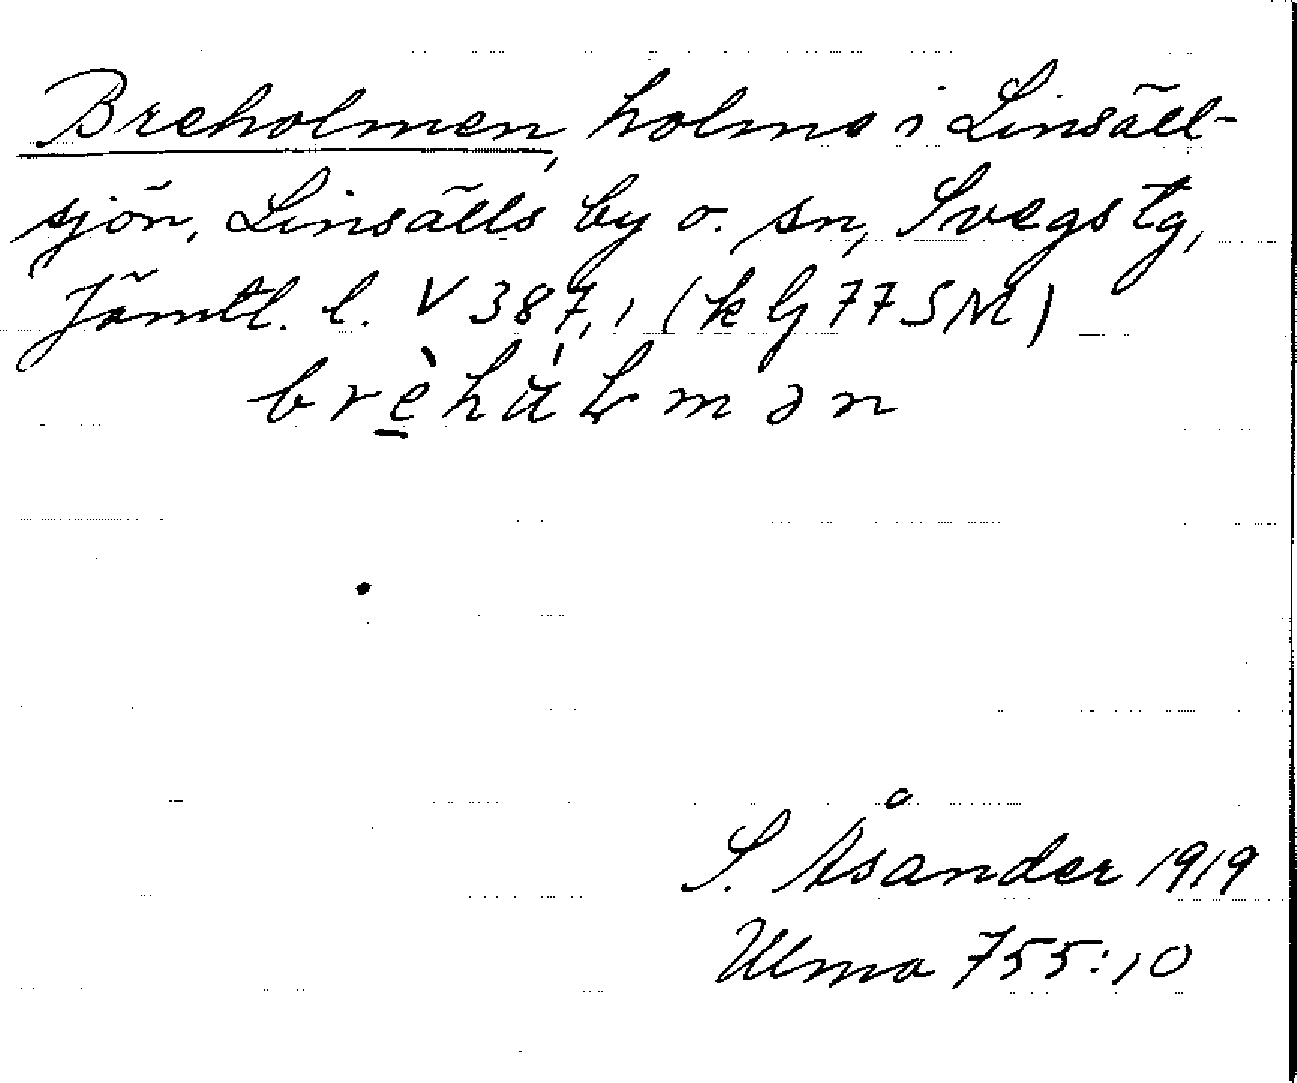 Breholmen, holme i Linsäll-
sjön, Linsälls by o. sn, Svegs tg,
Jämtl. l. V 387,1 (k G 77 SM)
brèhálmən
S. Åsander 1919
Ulma 755:10